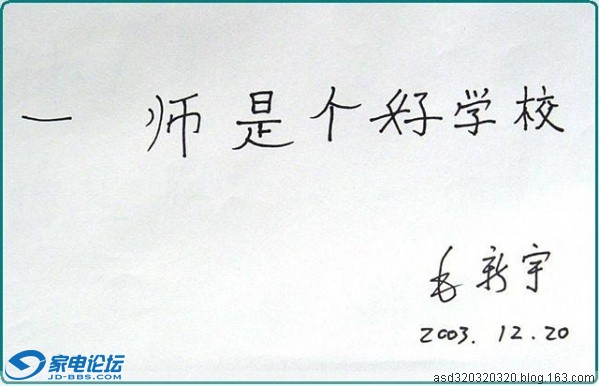 一 师是个好学校
毛新宇
2003.12.20
家电论坛
JD-BBS.COM
asd320320320.blog.163.com